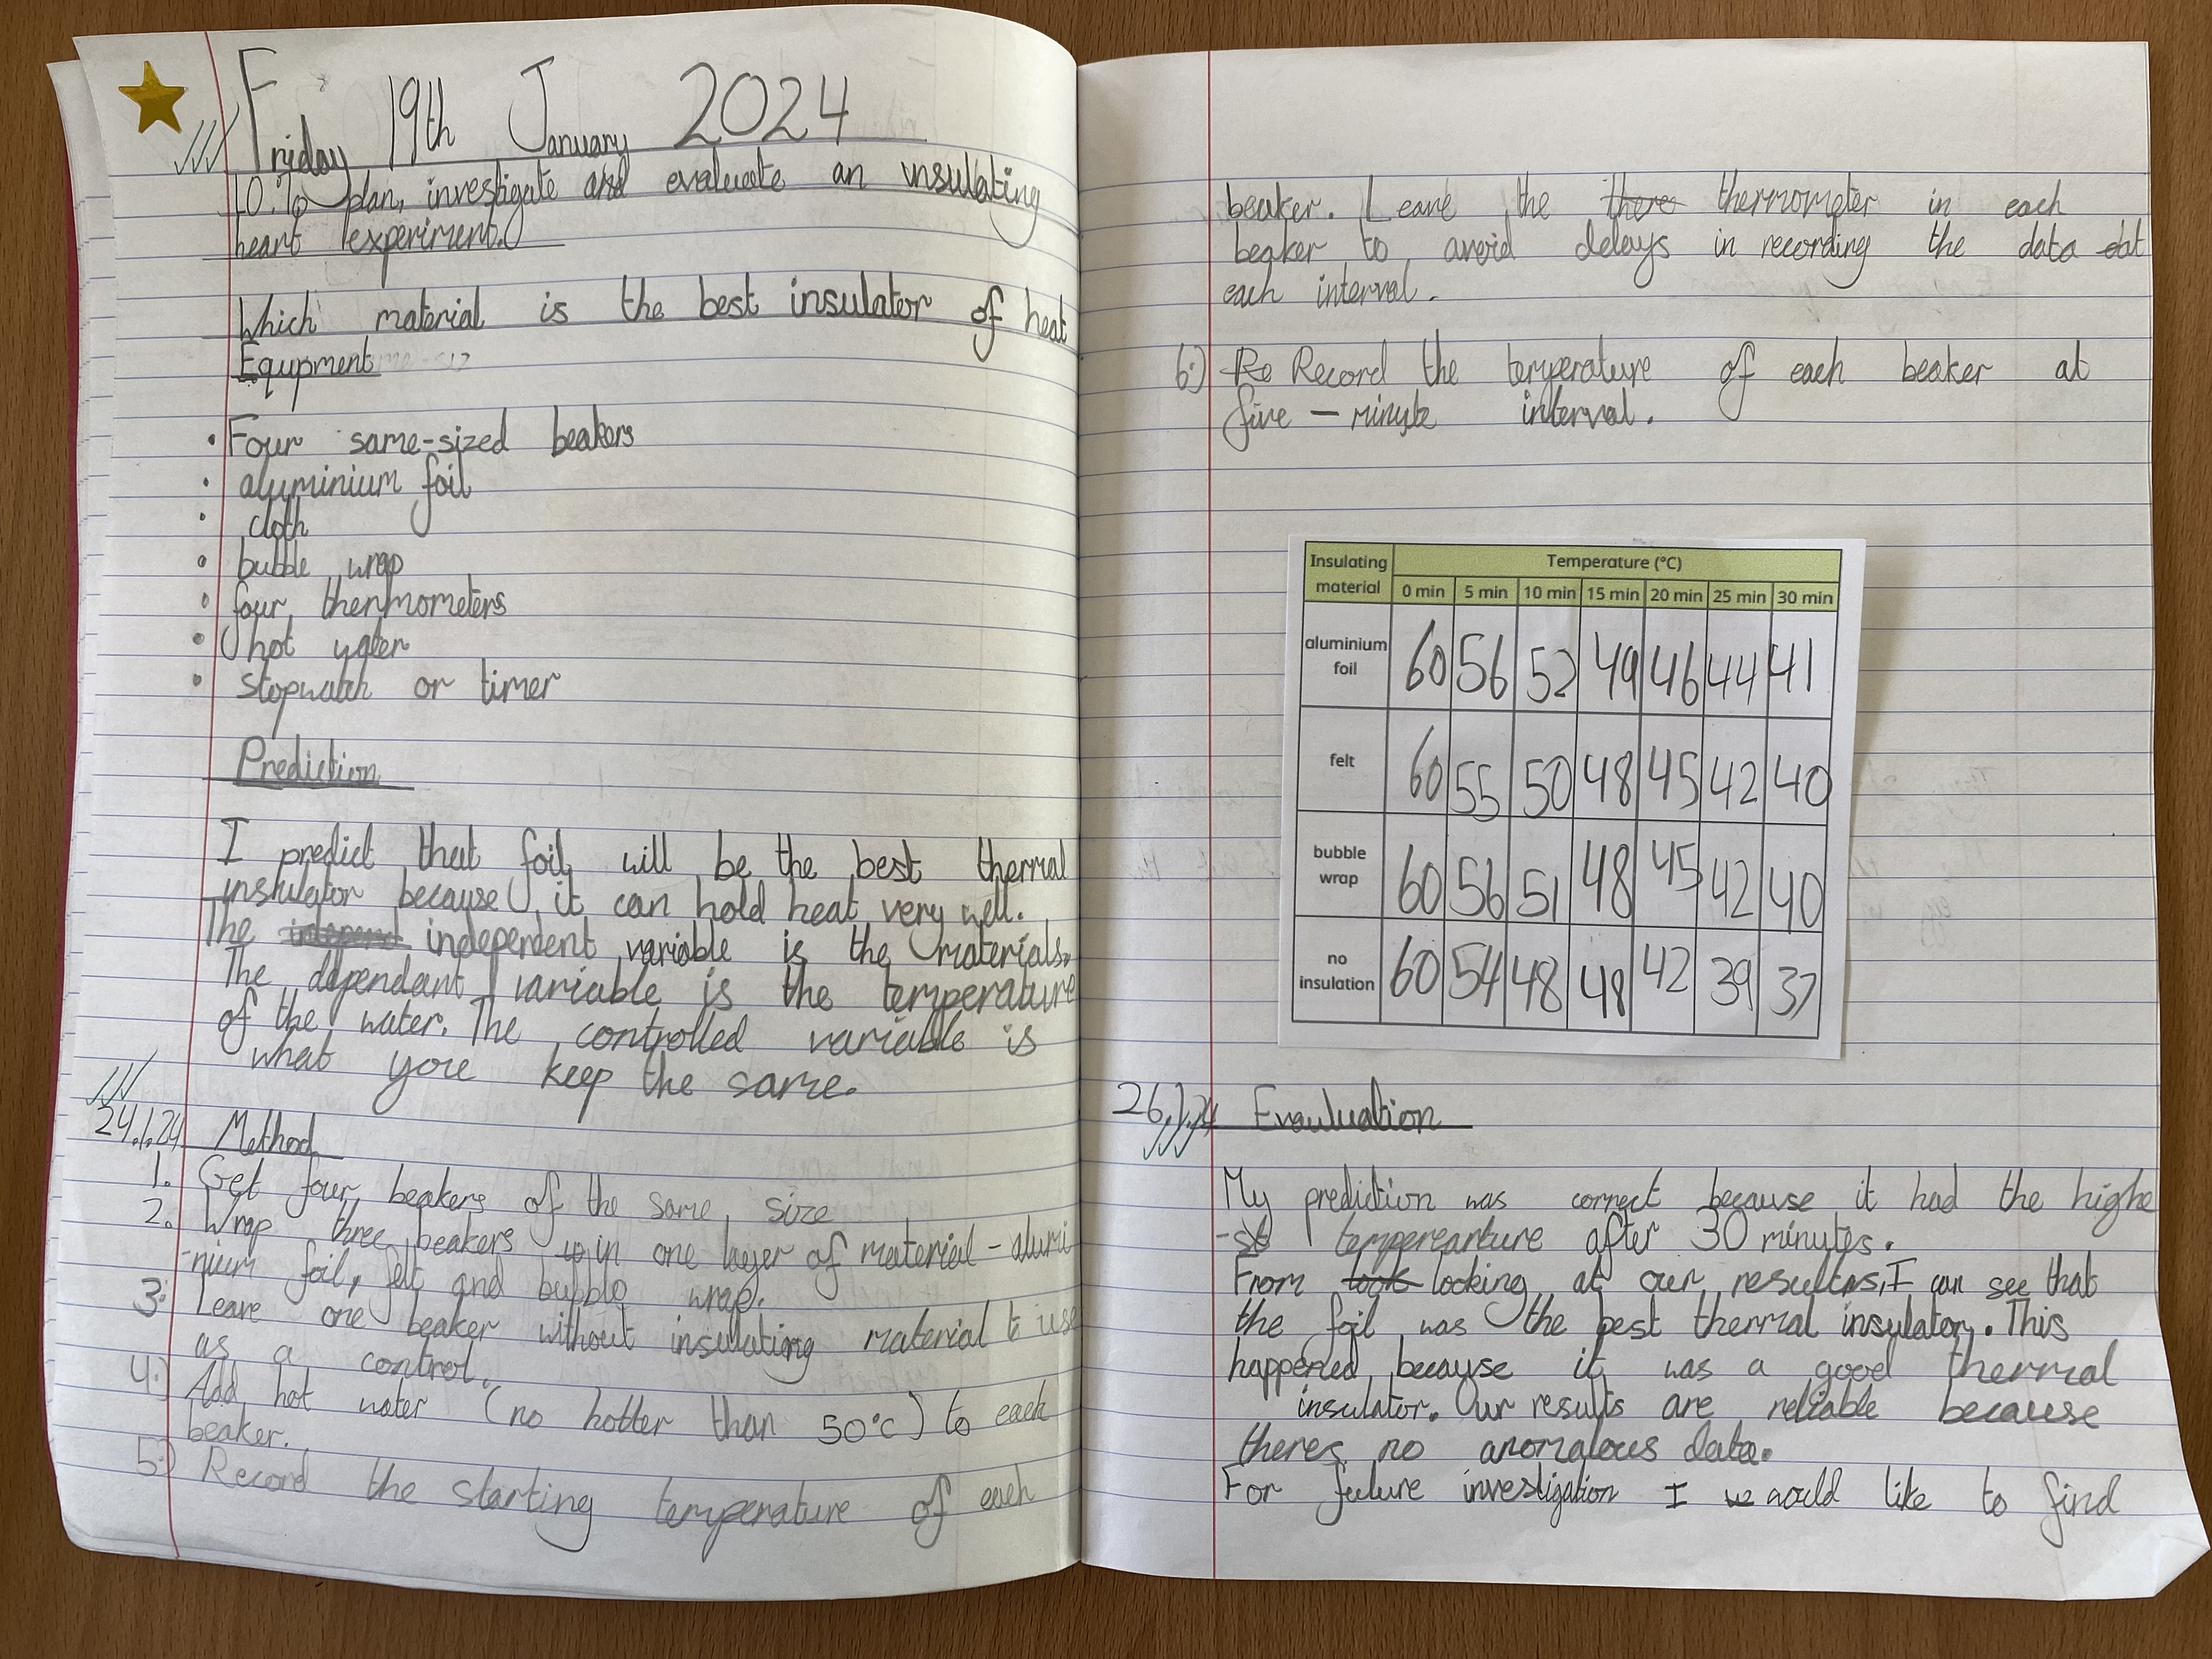 Friday 19th January 2024
L0:To plan, investigate and evaluate an insulating
heart experiment.
Which material is the best insulator of heat
Equipment
• Four same-sized beakers
• aluminium foil
• cloth
• bubble wrap
• four thermometers
• hot water
• stopwatch or timer
Prediction
I predict that foil will be the best thermal
insulator because it can hold heat very well.
The independent variable is the materials.
The dependant variable is the temperature
of the water. The controlled variable is
what youre keep the same.
24.1.24 Method
1. Get four beakers of the same size
2. Wrap three beakers in one layer of material - alumi
-nium foil, felt and bubble wrap.
3. Leave one beaker without insulating material to use
as a control.
4.) Add hot water (no hotter than 50°C) to each
beaker.
5.) Record the starting temperature of each
beaker. Leave the there thermometer in each
beaker to avoid delays in recording the data
each interval.
6.) Re Record the temperature of each beaker at
five - minute interval.
Insulating material Temperature (°C)
0 min 5 min 10 min 15 min 20 min 25 min 30 min
aluminium foil 60 56 52 49 46 44 41
felt 60 55 50 48 45 42 40
bubble wrap 60 56 51 48 45 42 40
no insulation 60 54 48 48 42 39 37
26.1.24 Evauluation
My prediction was correct because it had the highe
-st tempereanture after 30 minutes.
From look looking at our results, I can see that
the foil was the best thermal insulator. This
happened because it was a good thermal
insulator. Our results are reliable because
theres no anomalous data.
For future investigation I would like to find